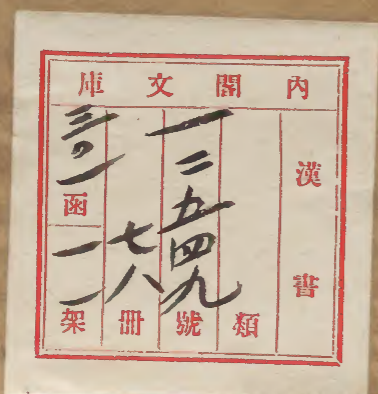 內閣文庫
漢書
類
一二五四九號
七八冊
三〇一函
一一架